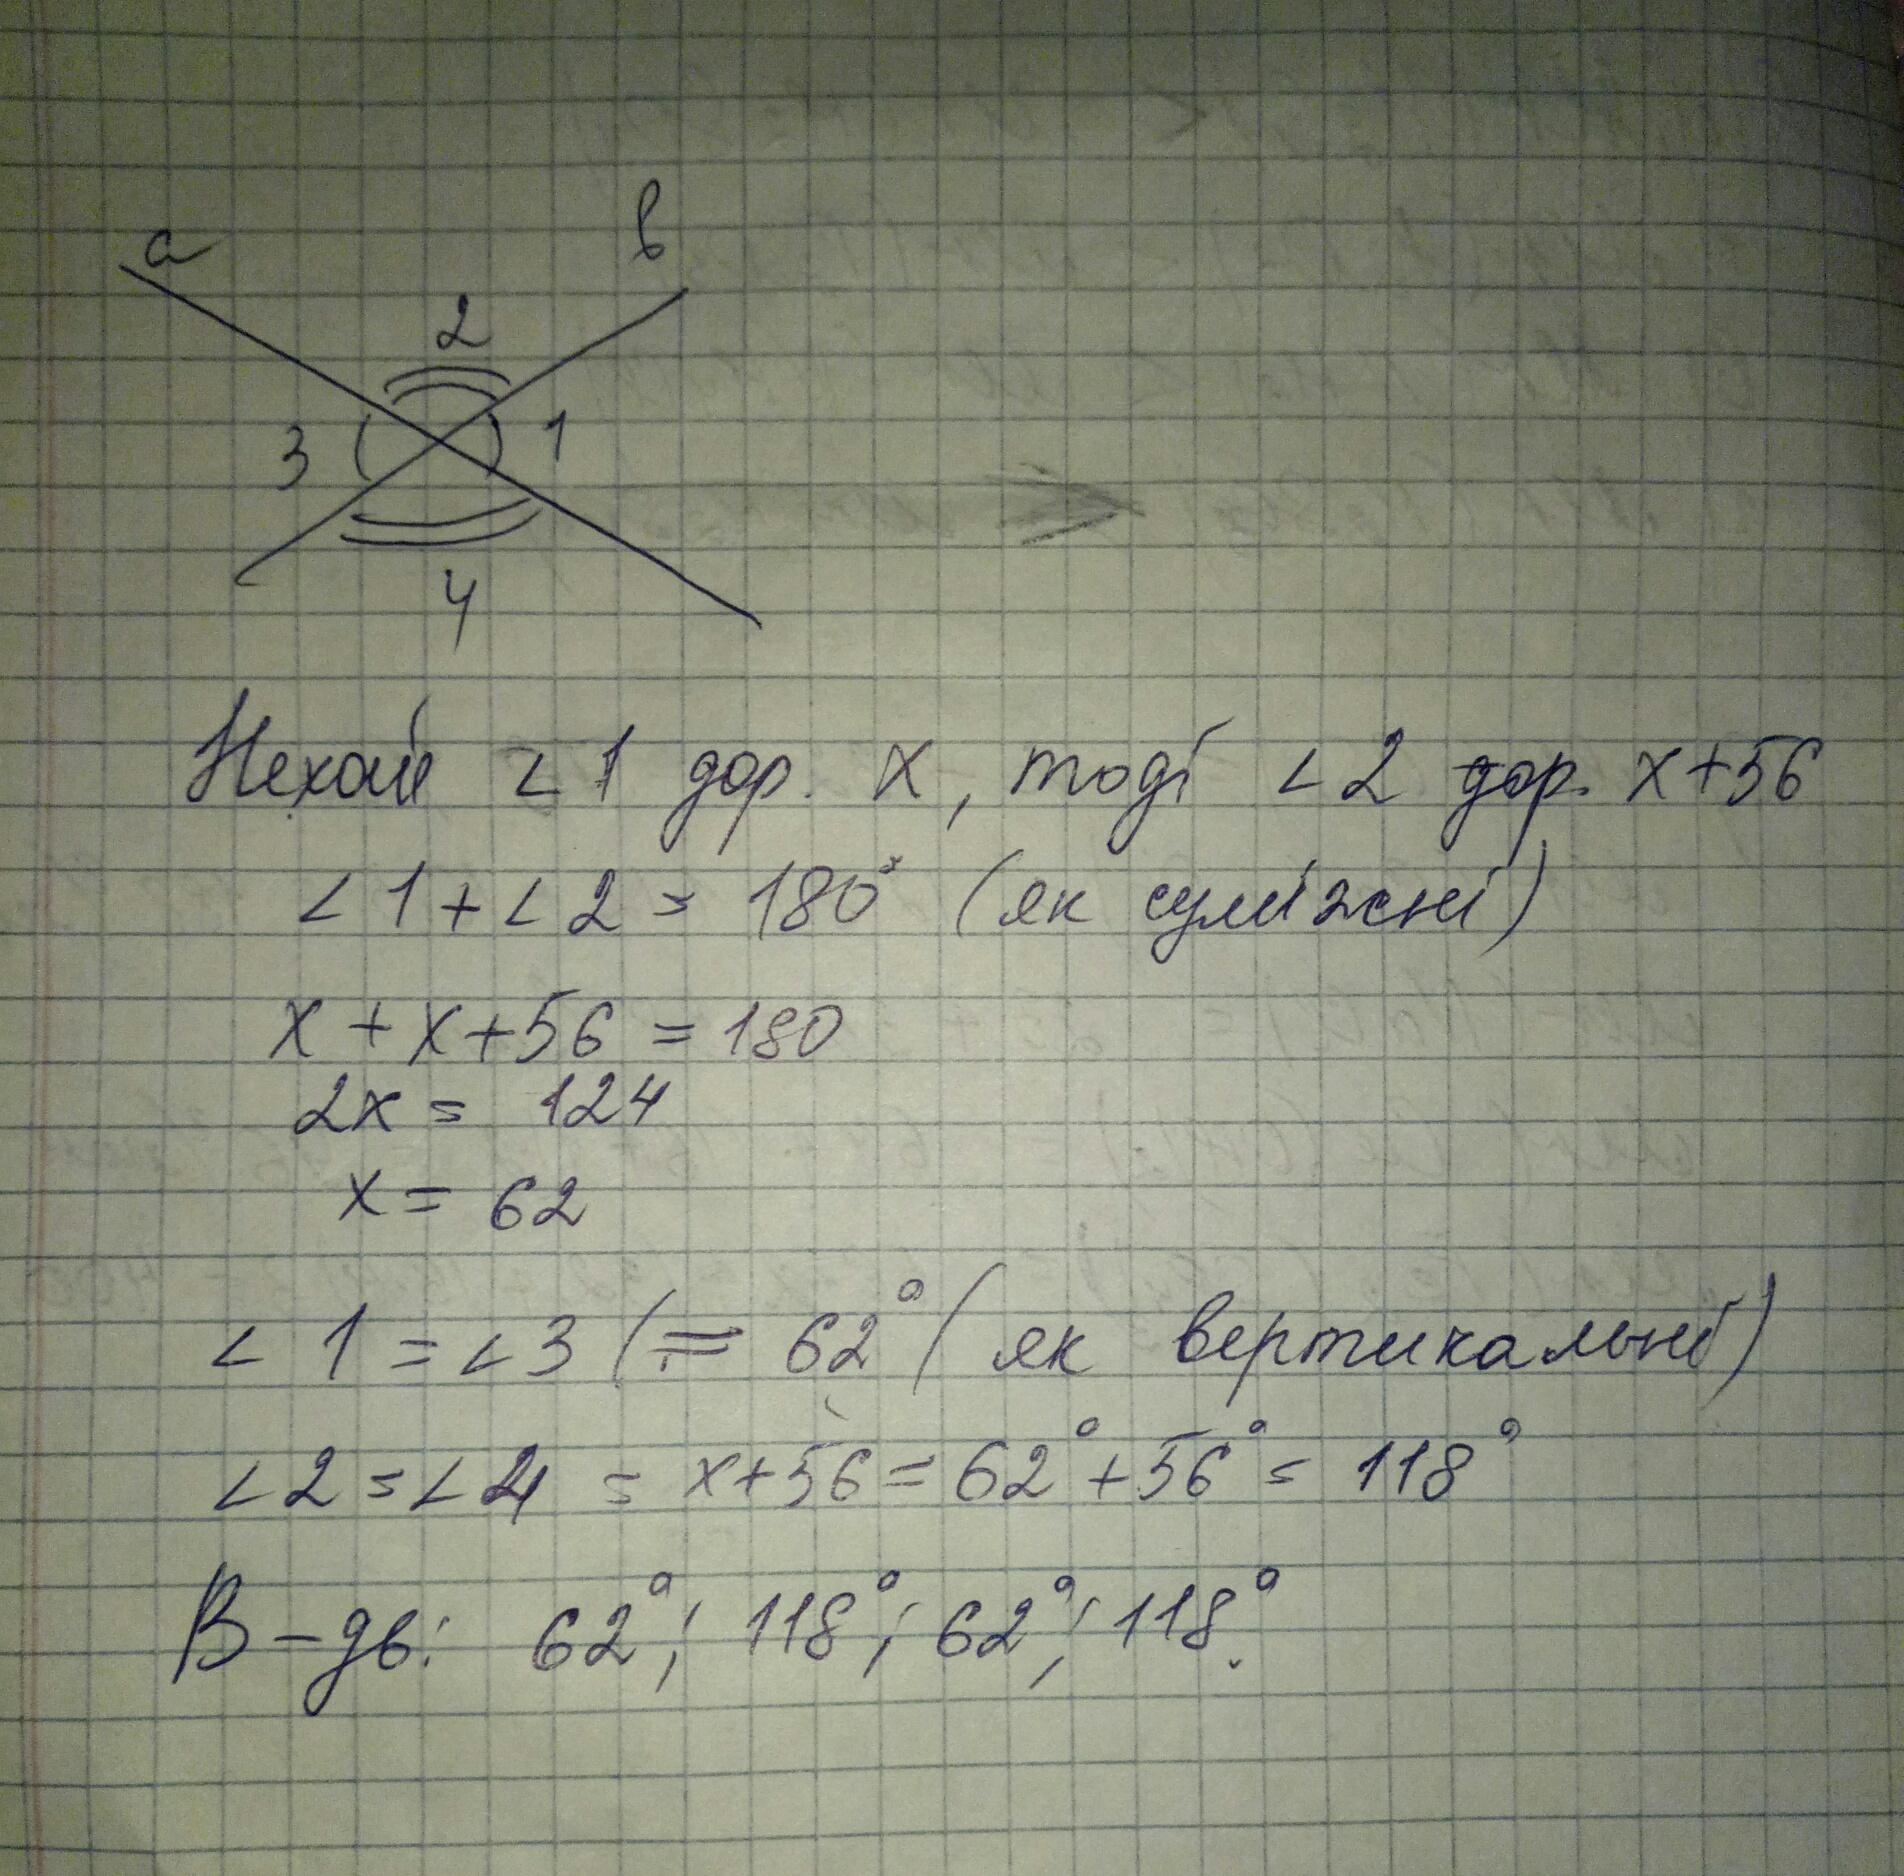 a
в
2
3
1
4
Нехай ∠1 дор. x, тоді ∠2 дор. x+56
∠1+∠2 = 180° (як суміжні)
x + x+56 = 180
2x = 124
x = 62
∠1 = ∠3 (= 62° (як вертикальні)
∠2 = ∠4 = x+56 = 62° + 56° = 118°
В-дь: 62°; 118°; 62°; 118°.